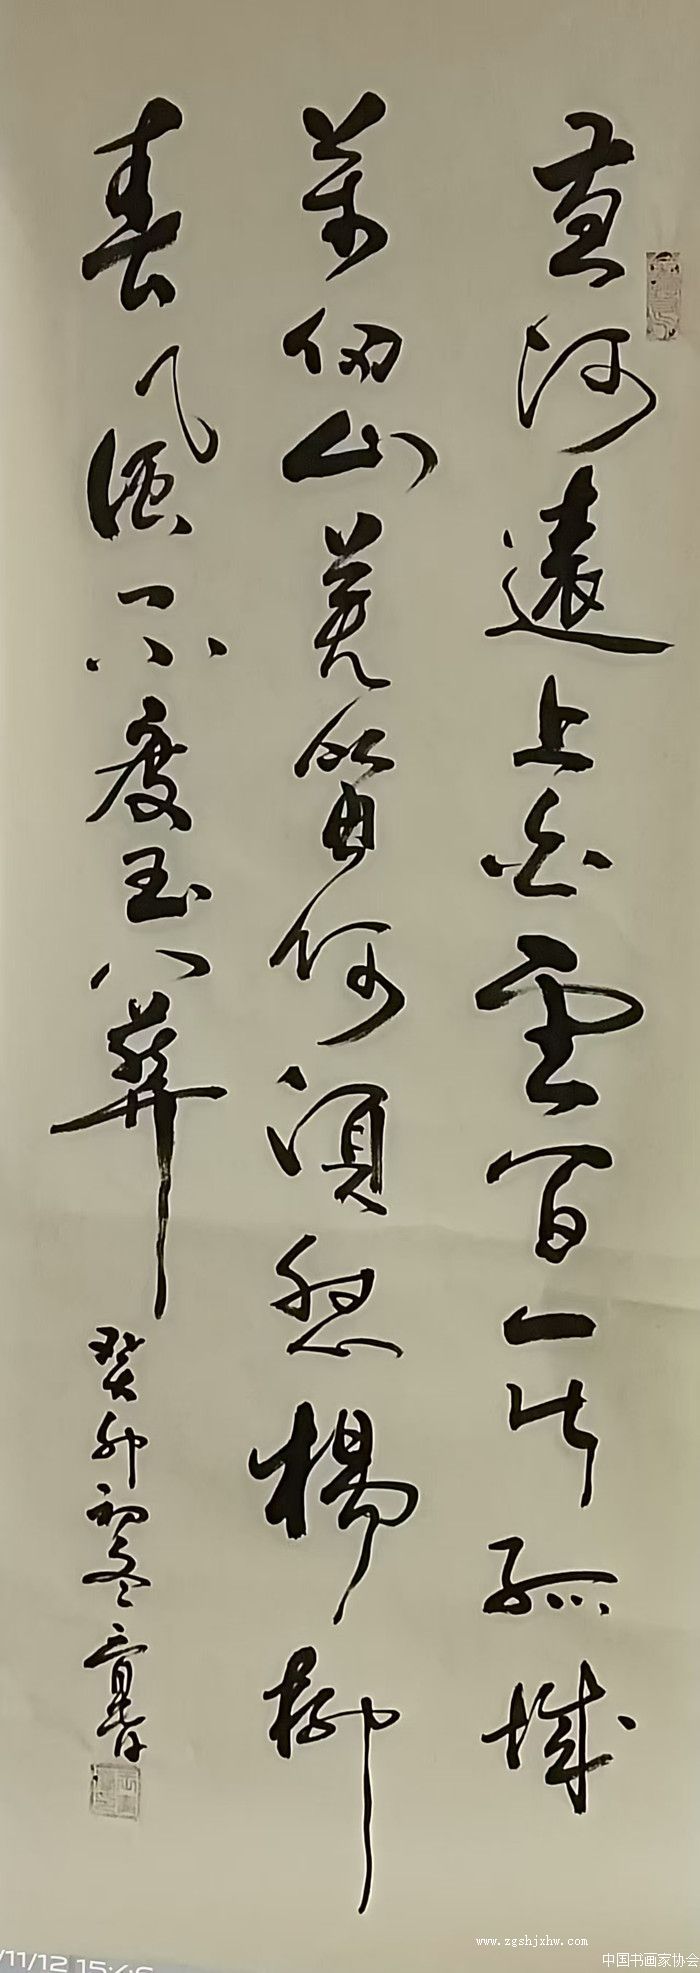 黄河遠上白雲間一片孤城
萬仞山羌笛何須怨楊柳
春風不度玉門關
癸卯初冬
/11/12 15:46
www.zgshjxhw.com
中国书画家协会